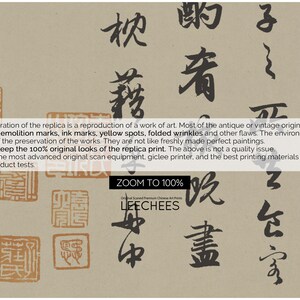 子之所共食客
酌肴核既盡
枕藉乎舟中
ration of the replica is a reproduction of a work of art. Most of the antique or vintage origin
emolition marks, ink marks, yellow spots, folded wrinkles and other flaws. The environ
the preservation of the works. They are not like freshly made perfect paintings.
eep the 100% original looks of the replica print. The above is not a quality issue.
he most advanced original scan equipment, giclee printer, and the best printing materials
duct tests.
ZOOM TO 100%
LEECHEES